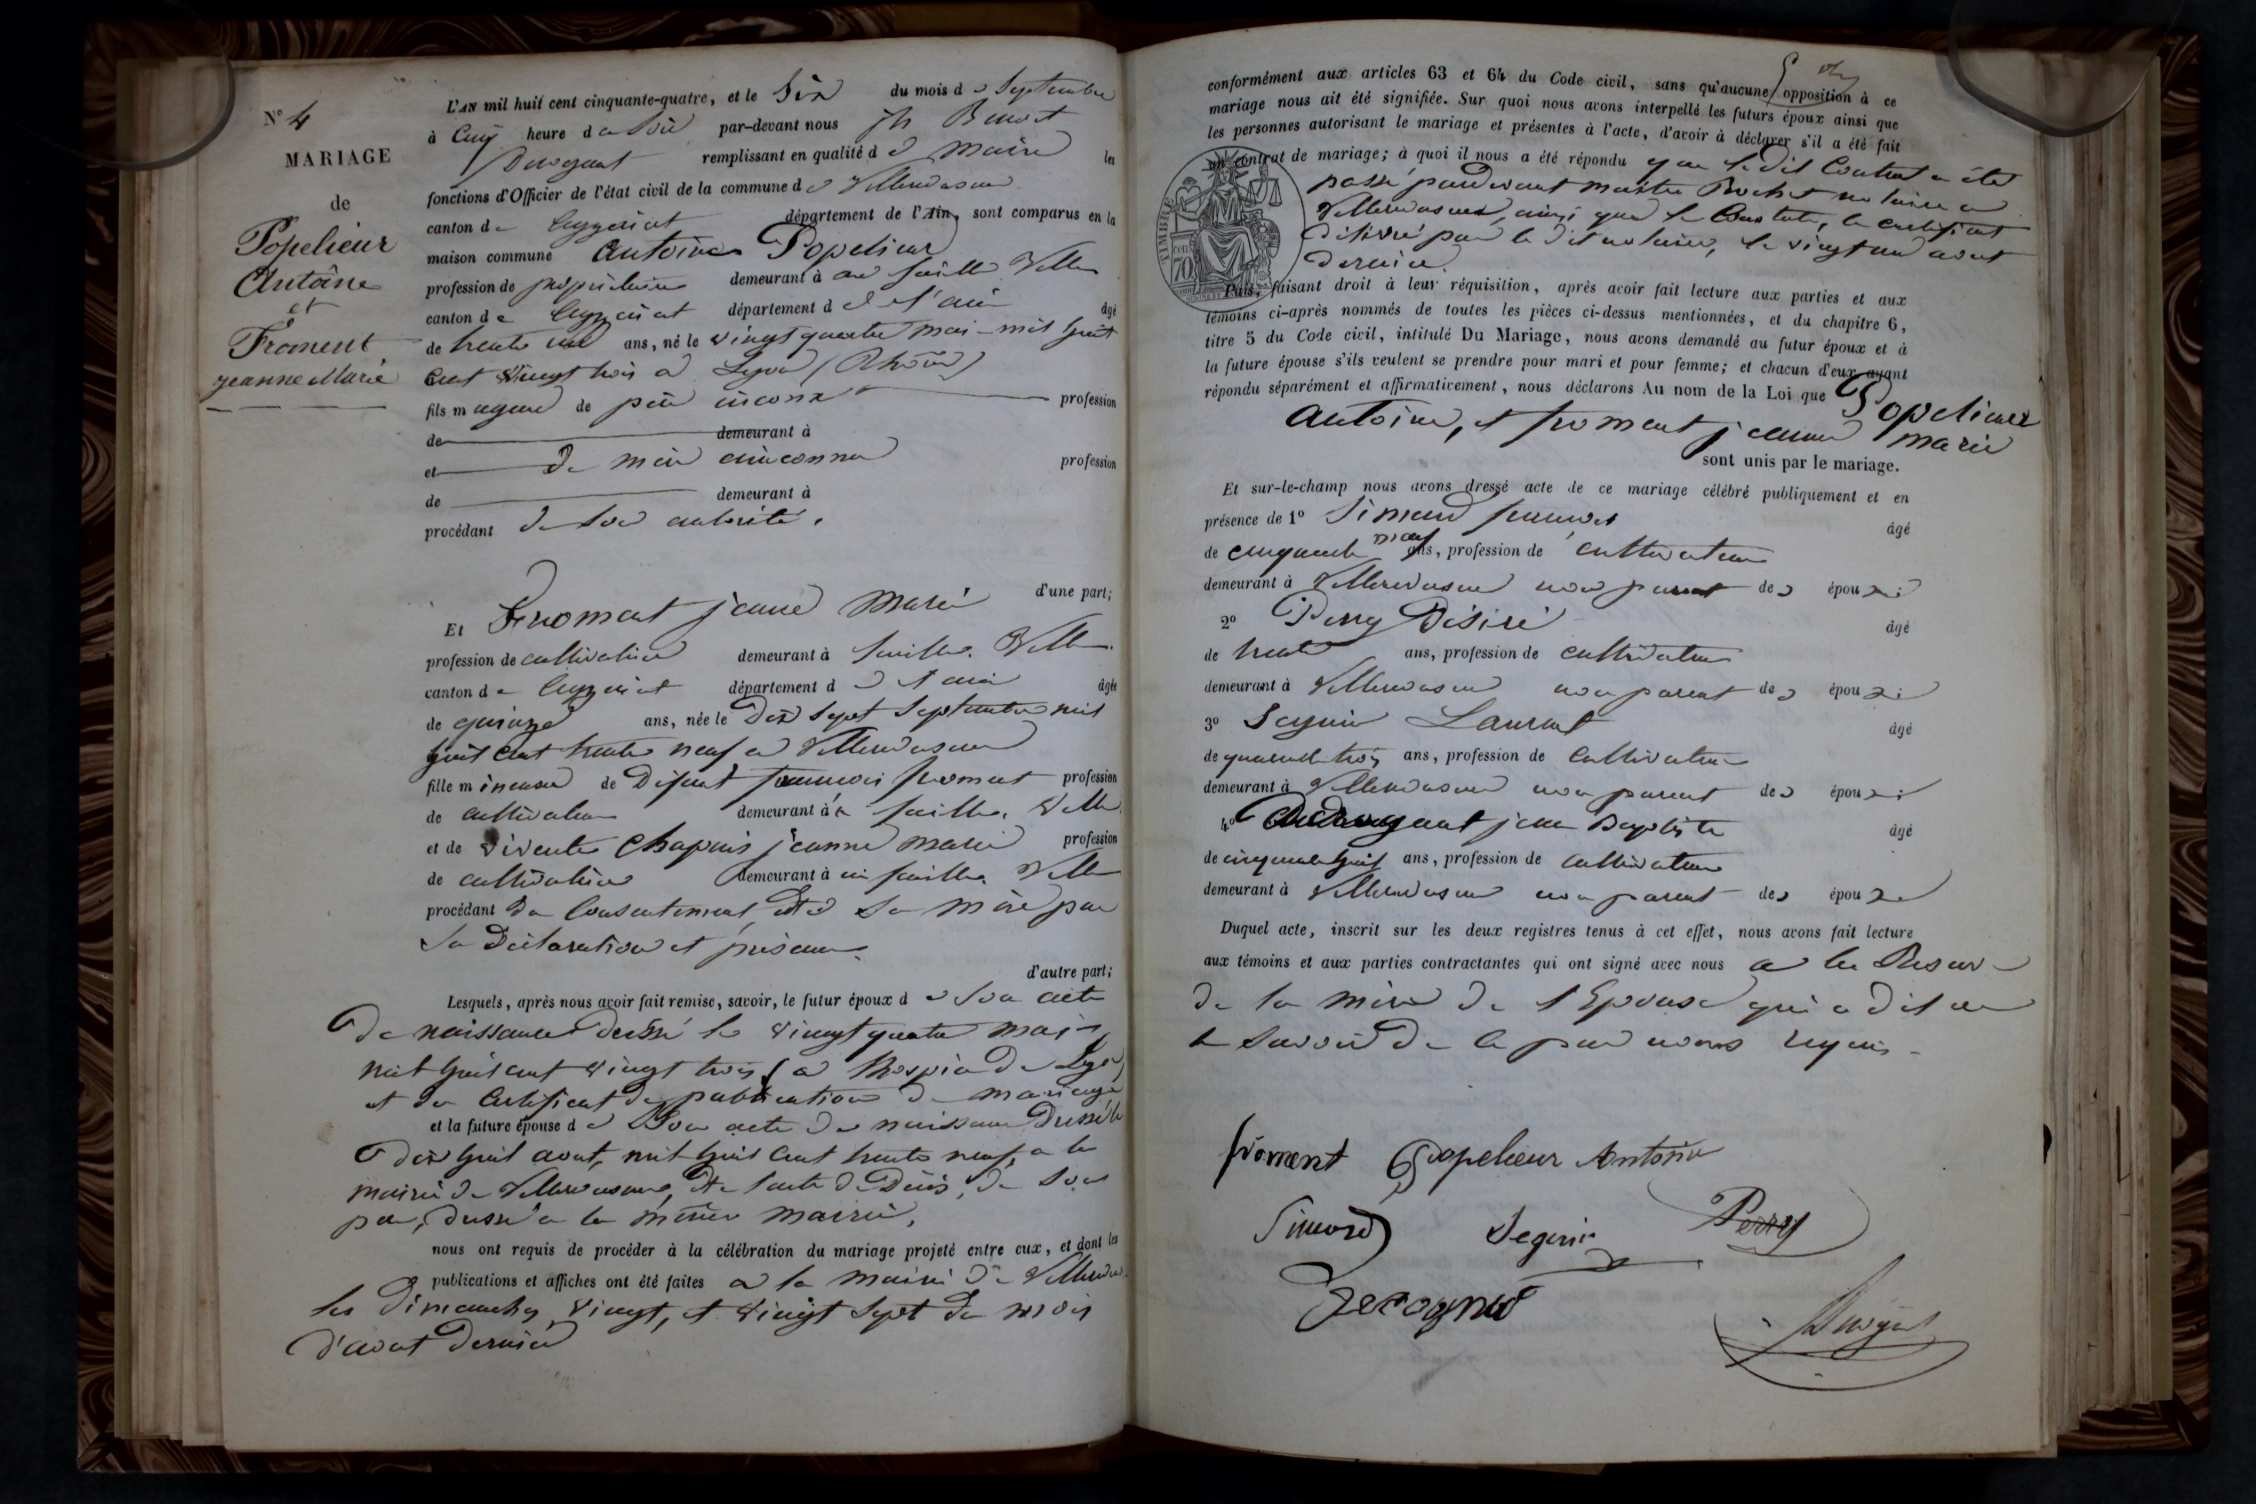 N° 4
MARIAGE
de
Popelieur
Antoine
et
Froment
jeanne Marie
L'AN mil huit cent cinquante-quatre, et le Six du mois de Septembre
à Cinq heure du Soir par-devant nous Benoit
remplissant en qualité de maire les
fonctions d'Officier de l'état civil de la commune de
canton de département de l'Ain, sont comparus en la
maison commune Antoine Popelieur
profession de propriétaire demeurant à
canton de département de l'ain âgé
de trente un ans, né le vingt quatre mai mil huit
cent vingt trois a Lyon (Rhône)
fils majeur de père inconn profession
de demeurant à
et de mère inconnu profession
de demeurant à
procédant de son autorité.
d'une part;
Et Froment jeanne Marie
profession de cultivatrice demeurant à
canton de département de l'ain âgée
de quinze ans, née le Dix Sept Septembre mil
huit cent trente neuf a
fille mineure de Défunt francois froment profession
de cultivateur demeurant à
et de vivente Chapuis jeanne marie profession
de cultivatrice demeurant à
procédant du Consentement de Sa mère par
Sa Déclaration et présence
d'autre part;
Lesquels, après nous avoir fait remise, savoir, le futur époux de Son acte
De naissance Dressé le vingt quatre mai
mil huit cent vingt trois, a hospice De Lyon
et du Certificat de publication de mariage
et la future épouse de Son acte De naissance Dressé le
dix huit aout, mil huit cent trente neuf, a la
mairie de et De l'acte de Décès, de Son
père, Dressé a la même mairie,
nous ont requis de procéder à la célébration du mariage projeté entre eux, et dont les
publications et affiches ont été faites a la mairie De
les Dimanches vingt, et vingt Sept du mois
D'aout Dernier
conformément aux articles 63 et 64 du Code civil, sans qu'aucune opposition à ce
mariage nous ait été signifiée. Sur quoi nous avons interpellé les futurs époux ainsi que
les personnes autorisant le mariage et présentes à l'acte, d'avoir à déclarer s'il a été fait
un contrat de mariage; à quoi il nous a été répondu que le dit Contrat a été
passé pardevant maître Rochet notaire a
ainsi que le Constate, le certificat
délivré par le dit notaire, le vingt un aout
Dernier.
TIMBRE
70
Puis, faisant droit à leur réquisition, après avoir fait lecture aux parties et aux
témoins ci-après nommés de toutes les pièces ci-dessus mentionnées, et du chapitre 6,
titre 5 du Code civil, intitulé Du Mariage, nous avons demandé au futur époux et à
la future épouse s'ils veulent se prendre pour mari et pour femme; et chacun d'eux ayant
répondu séparément et affirmativement, nous déclarons Au nom de la Loi que Popelieur
Antoine, et froment jeanne marie
sont unis par le mariage.
Et sur-le-champ nous avons dressé acte de ce mariage célébré publiquement et en
présence de 1° Simand francois âgé
de cinquante neuf ans, profession de cultivateur
demeurant à non parent des époux;
2° Perry Désiré âgé
de trente ans, profession de cultivateur
demeurant à non parent des époux;
3° Seguin Laurent âgé
de quarante trois ans, profession de cultivateur
demeurant à non parent des époux;
4° jean Baptiste âgé
de cinquante huit ans, profession de cultivateur
demeurant à non parent des époux
Duquel acte, inscrit sur les deux registres tenus à cet effet, nous avons fait lecture
aux témoins et aux parties contractantes qui ont signé avec nous a la Réserve
de la mère De l'Epouse qui a dit ne
le Savoir De ce par nous requis
froment Popelieur Antoine
Simand Seguin Perry